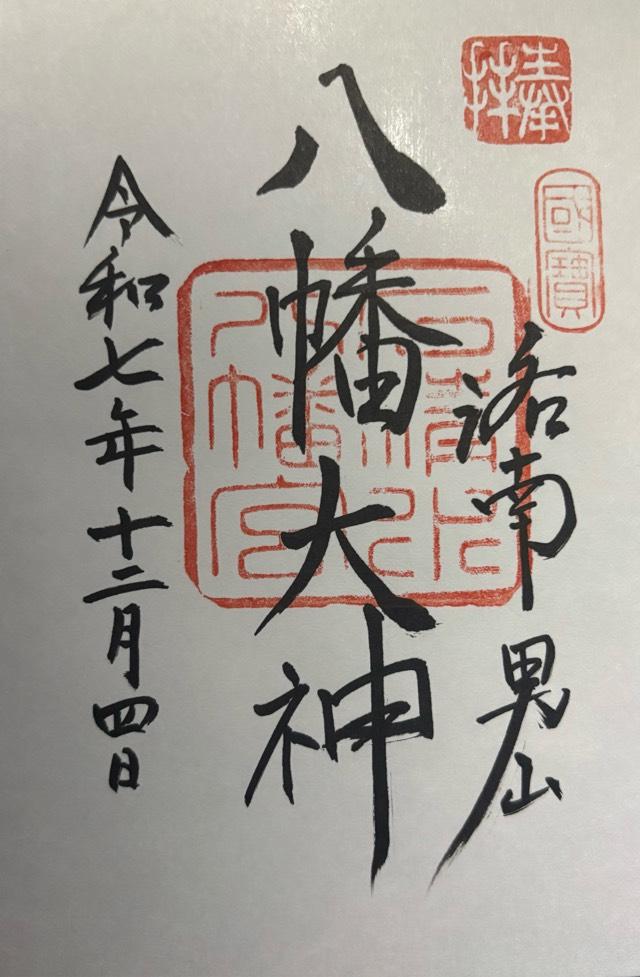 奉拝
國寶
洛南男山
八幡大神
石清水八幡宮
令和七年十二月四日